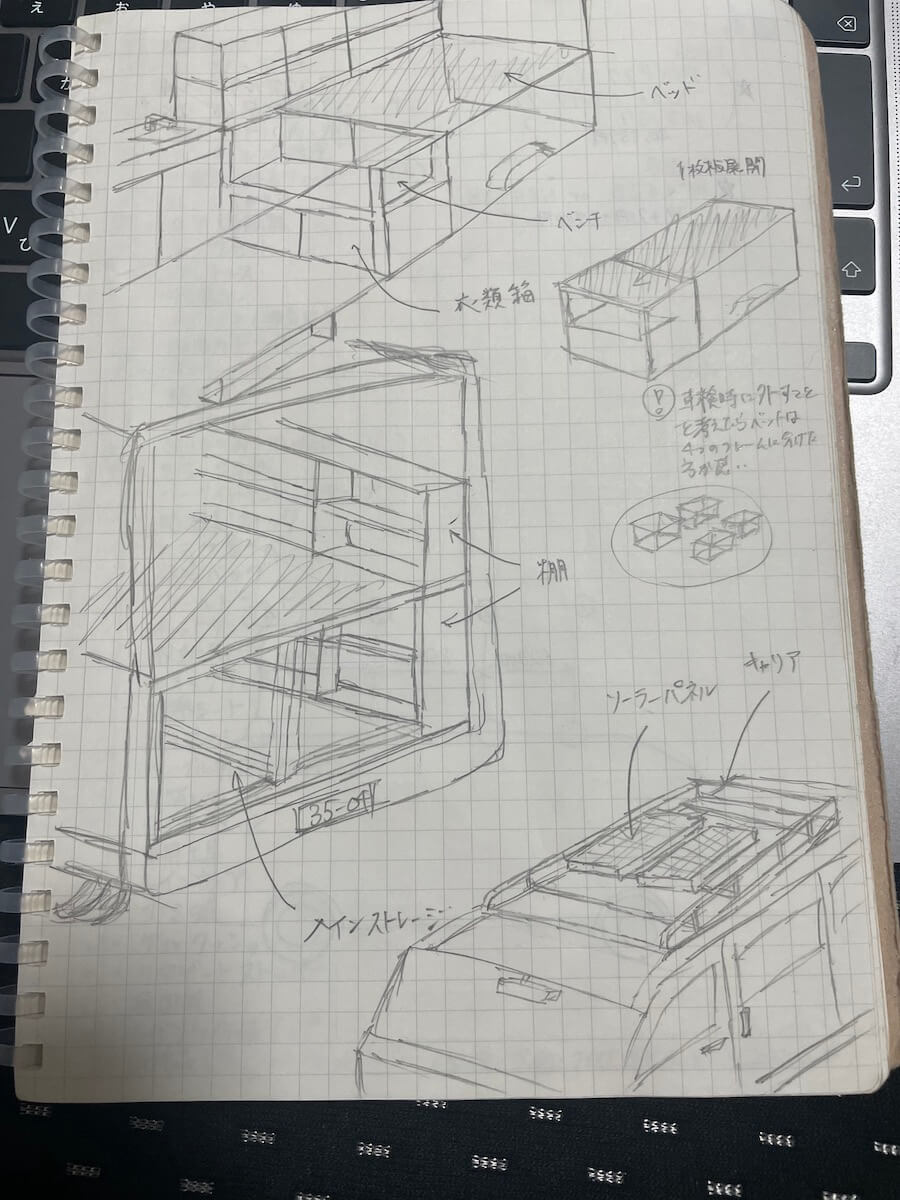 え
お
や
ゆ
V
ひ
か
ベッド
1枚板展開
ベンチ
衣類箱
車検時に外すこと
を考えたらベットは
4つのフレームに分けた
ろが
棚
キャリア
ソーラーパネル
35-04
メインストレージ